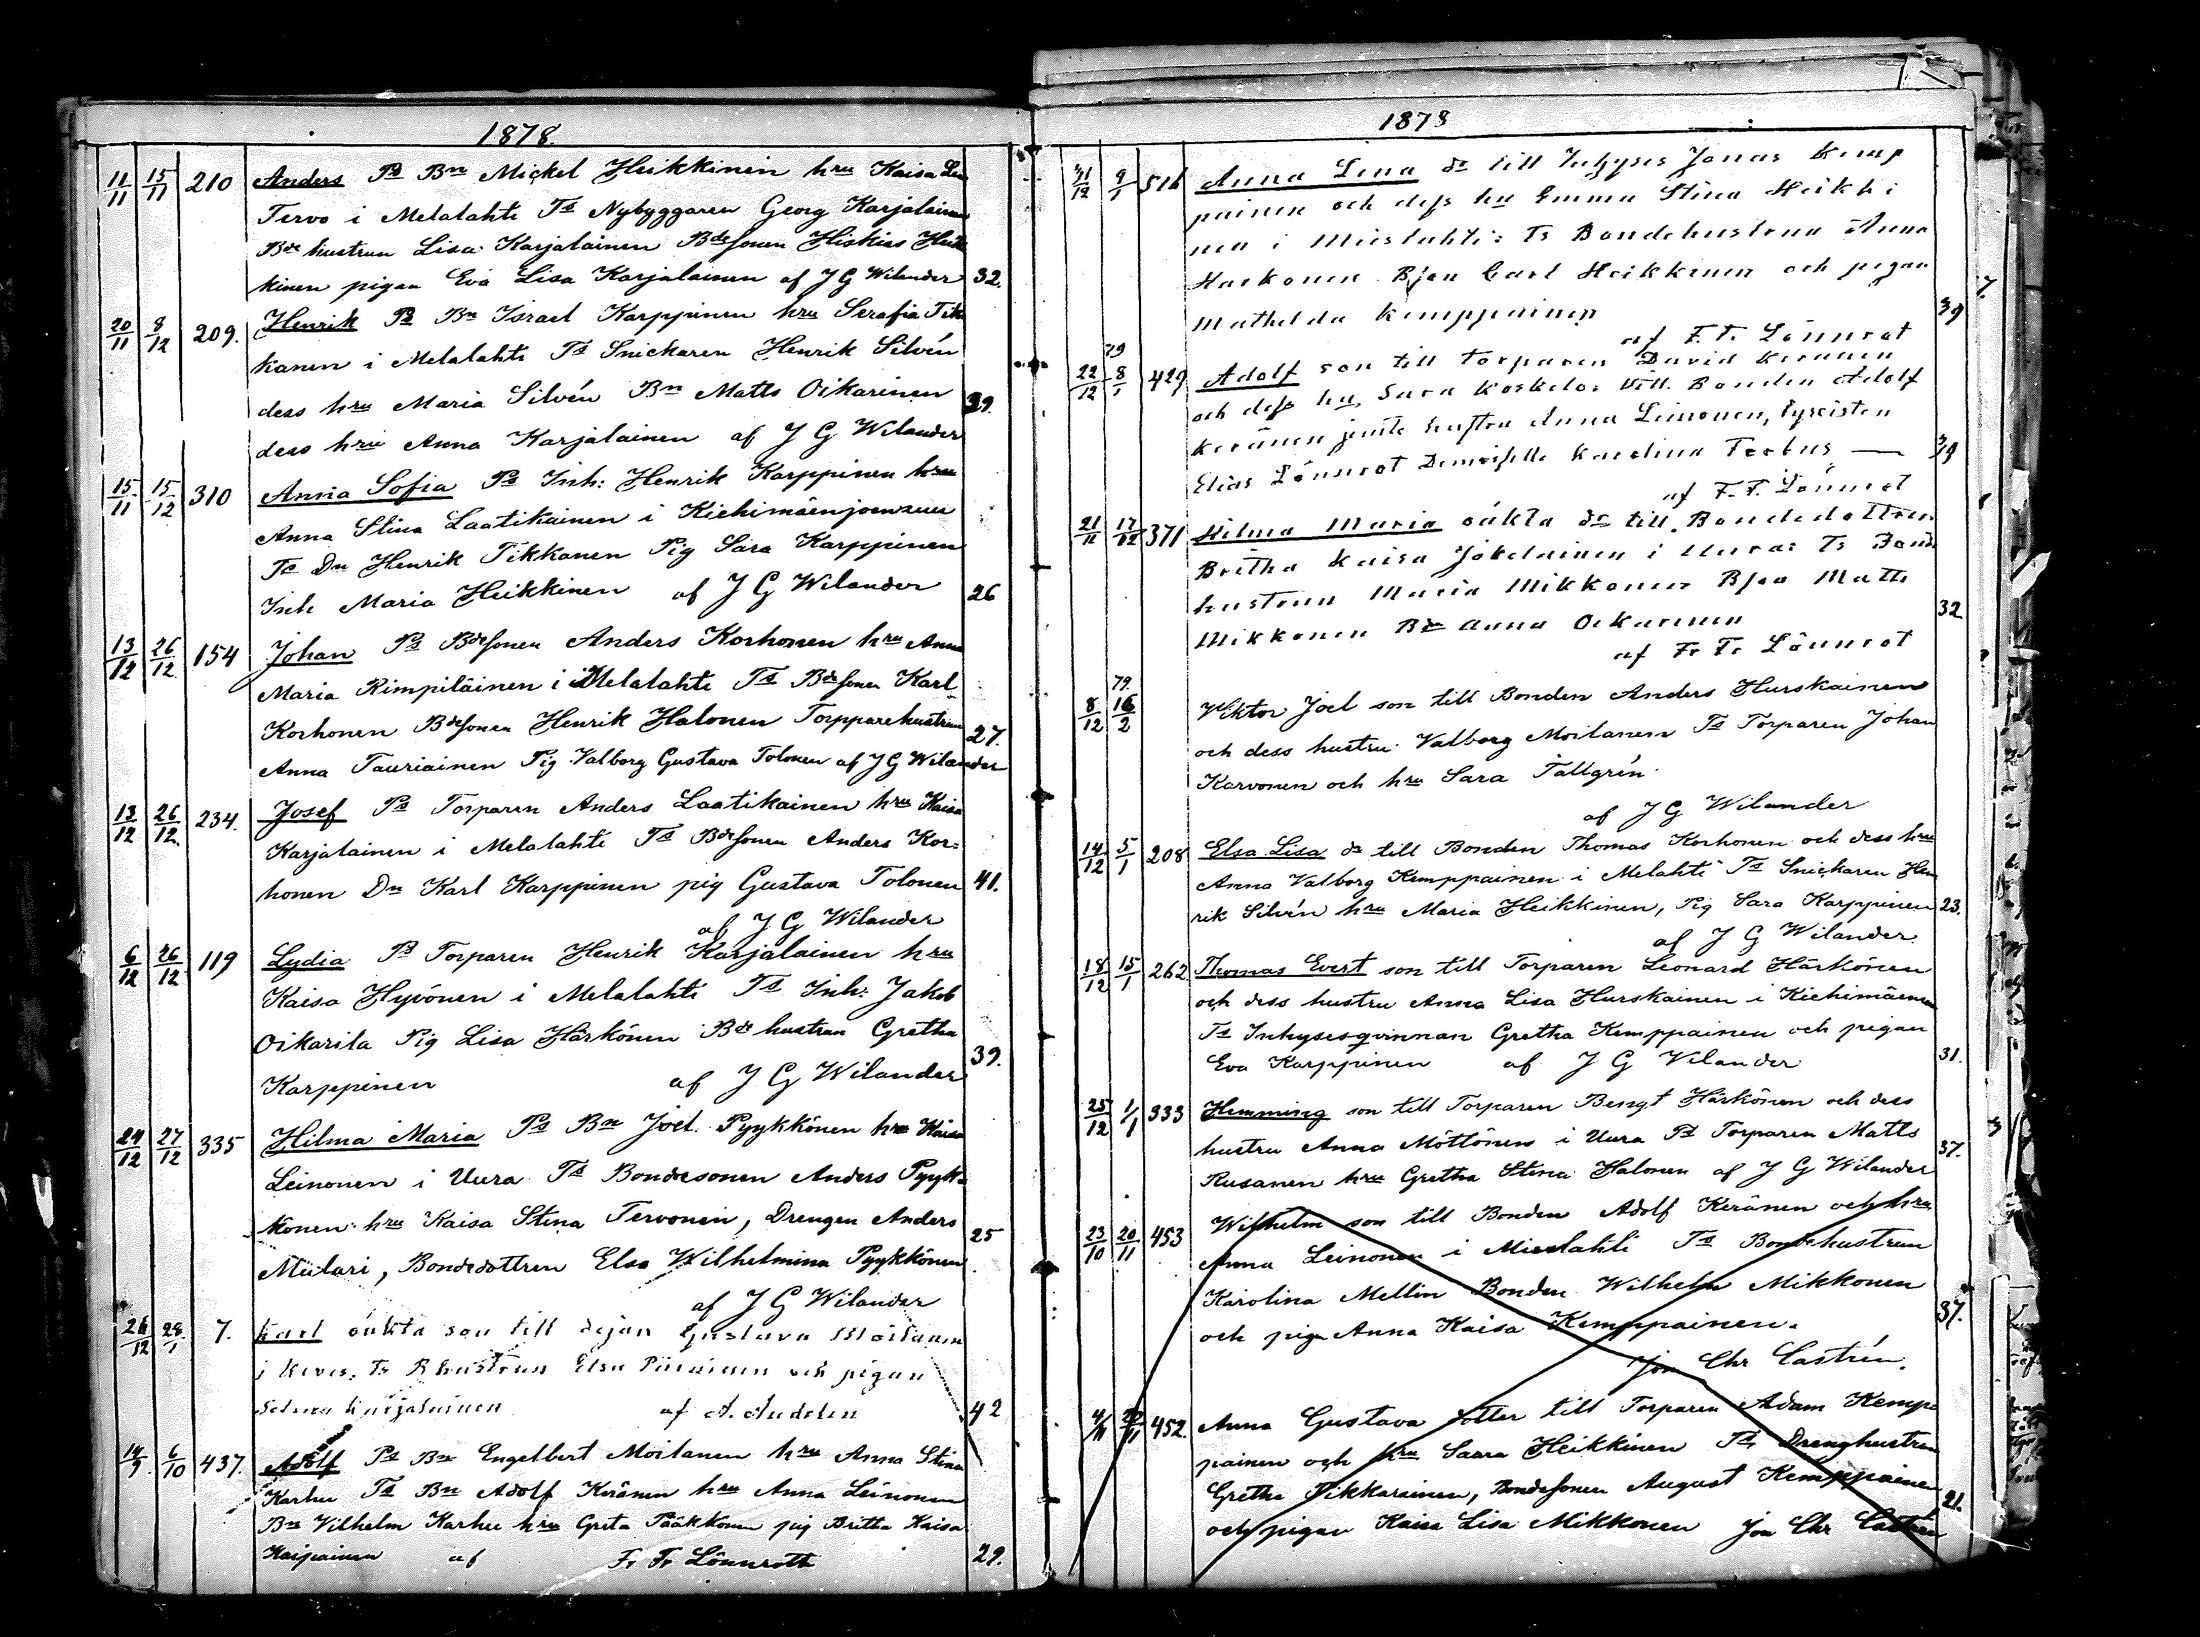 1878.
11/11 15/11 210 Anders Ps Bn Mickel Heikkinen hru Kaisa Lisa
Tervo i Melalahti Ts Nybyggaren Georg Karjalainen
Bde hustrun Lisa Karjalainen Bdesonen Hiskias Heik
kinen pigan Eva Lisa Karjalainen af J G Wilander 32.
20/11 8/12 209. Henrik Ps Bn Israel Karppinen hru Serafia Tik
kanen i Melalahti Ts Snickaren Henrik Silvén
dess hru Maria Silvén Bn Matts Oikarinen 39.
dess hru Anna Karjalainen af J G Wilander
15/11 15/12 310 Anna Sofia Ps Inh: Henrik Karppinen hru
Anna Stina Laatikainen i Kiehimäenjoensuu
Ts Dn Henrik Tikkanen Pig Sara Karppinen
Inh Maria Heikkinen af J G Wilander 26
13/12 26/12 154 Johan Ps Bdesonen Anders Korhonen hru Anna
Maria Rimpiläinen i Melalahti Ts Bdesonen Karl
Korhonen Bdesonen Henrik Halonen Torpparehustrun 27.
Anna Tauriainen Pig Valborg Gustava Tolonen af J G Wilander
13/12 26/12 234. Josef Ps Torparen Anders Laatikainen hru Kaisa
Karjalainen i Melalahti Ts Bdesonen Anders Kor=
honen Dn Karl Karppinen pig Gustava Tolonen 41.
af J G Wilander
6/12 26/12 119 Lydia Ps Torparen Henrik Karjalainen hru
Kaisa Hyvönen i Melalahti Ts Inh: Jakob
Oikarila Pig Lisa Härkönen Bde hustrun Gretha
Karppinen af J G Wilander 39.
24/12 27/12 335 Hilma Maria Ps Bn Joel Pyykkönen hru Kaisa
Leinonen i Uura Ts Bondesonen Anders Pyyk=
könen hru Kaisa Stina Tervonen, Drengen Anders 25
Mulari, Bondedottren Elsa Wilhelmina Pyykkönen
af J G Wilander
26/12 28/1 7. Karl oäkta son till dejan Gustava Moilanen
i Ts B hustrun Elsa och pigan
Karjalainen af A. Andelin 42
14/9 6/10 437. Adolf Ps Bn Engelbert Moilanen hru Anna Stina
Karhu Ts Bn Adolf Keränen hru Anna Leinonen
Bn Vilhelm Karhu hru Greta Pääkkönen pig Britha Kaisa
Kaipainen af Fr Fr Lönnroth 29.
1878
31/12 9/1 516 Anna Lena dr till Inhyses Jonas Kemp
painen och dess hu Emma Stina Heikki
nen i Mieslahti: Ts Bondehustrun Anna
Harkonen Bson Carl Heikkinen och pigan
Mathilda Kemppainen 39
af F. Fr. Lönnrot
22/12 79 8/1 429 Adolf son till torparen David Keränen
och dess hu, Sara Koskelo: Vitt. Bonden Adolf
Keränen jemte hustru Anna Leinonen, Elias Lönnrot Demoiselle Karolina Forbus — 39
af F. F. Lönnrot
21/11 17/12 371 Hilma Maria oäkta dr till Bondedottren
Britha Kaisa Jokelainen i Uura: Ts Bond
hustrun Maria Mikkonen Bson Matts
Mikkonen Bdr Anna Oikarinen 32
af Fr Fr Lönnrot
8/12 79. 16/2 Viktor Joel son till Bonden Anders Hurskainen
och dess hustru Valborg Moilanen Ts Torparen Johan
Karvonen och hru Sara Tallgrén
af J G Wilander
14/12 5/1 208 Elsa Lisa dr till Bonden Thomas Korhonen och dess hru
Anna Valborg Kemppainen i Melahti Ts Snickaren Hen
rik Silvén hru Maria Heikkinen, Pig Sara Karppinen 23.
af J G Wilander
18/12 15/1 262 Thomas Evert son till Torparen Leonard Härkönen
och dess hustru Anna Lisa Hurskainen i Kiehimäensuu
Ts Inhysesqvinnan Gretha Kemppainen och pigan
Eva Karppinen af J G Wilander 31.
25/12 1/1 333 Hemming son till Torparen Bengt Härkönen och dess
hustru Anna Möttönen i Uura Ts Torparen Matts 37.
Rusanen hru Gretha Stina Halonen af J G Wilander
23/10 20/11 453 Wilhelm son till Bonden Adolf Keränen och hru
Anna Leinonen i Mieslahti Ts Bondehustrun
Karolina Mellin Bonden Wilhelm Mikkonen
och pigan Anna Kaisa Kemppainen. 37.
Jon Chr Castrén.
452. Anna Gustava dotter till Torparen Adam Kemp=
painen och hru Saara Heikkinen Ts Drenghustrun
Gretha Pikkarainen, Bondesonen August Kemppainen
och pigan Kaisa Lisa Mikkonen Jon Chr Castrén 21.